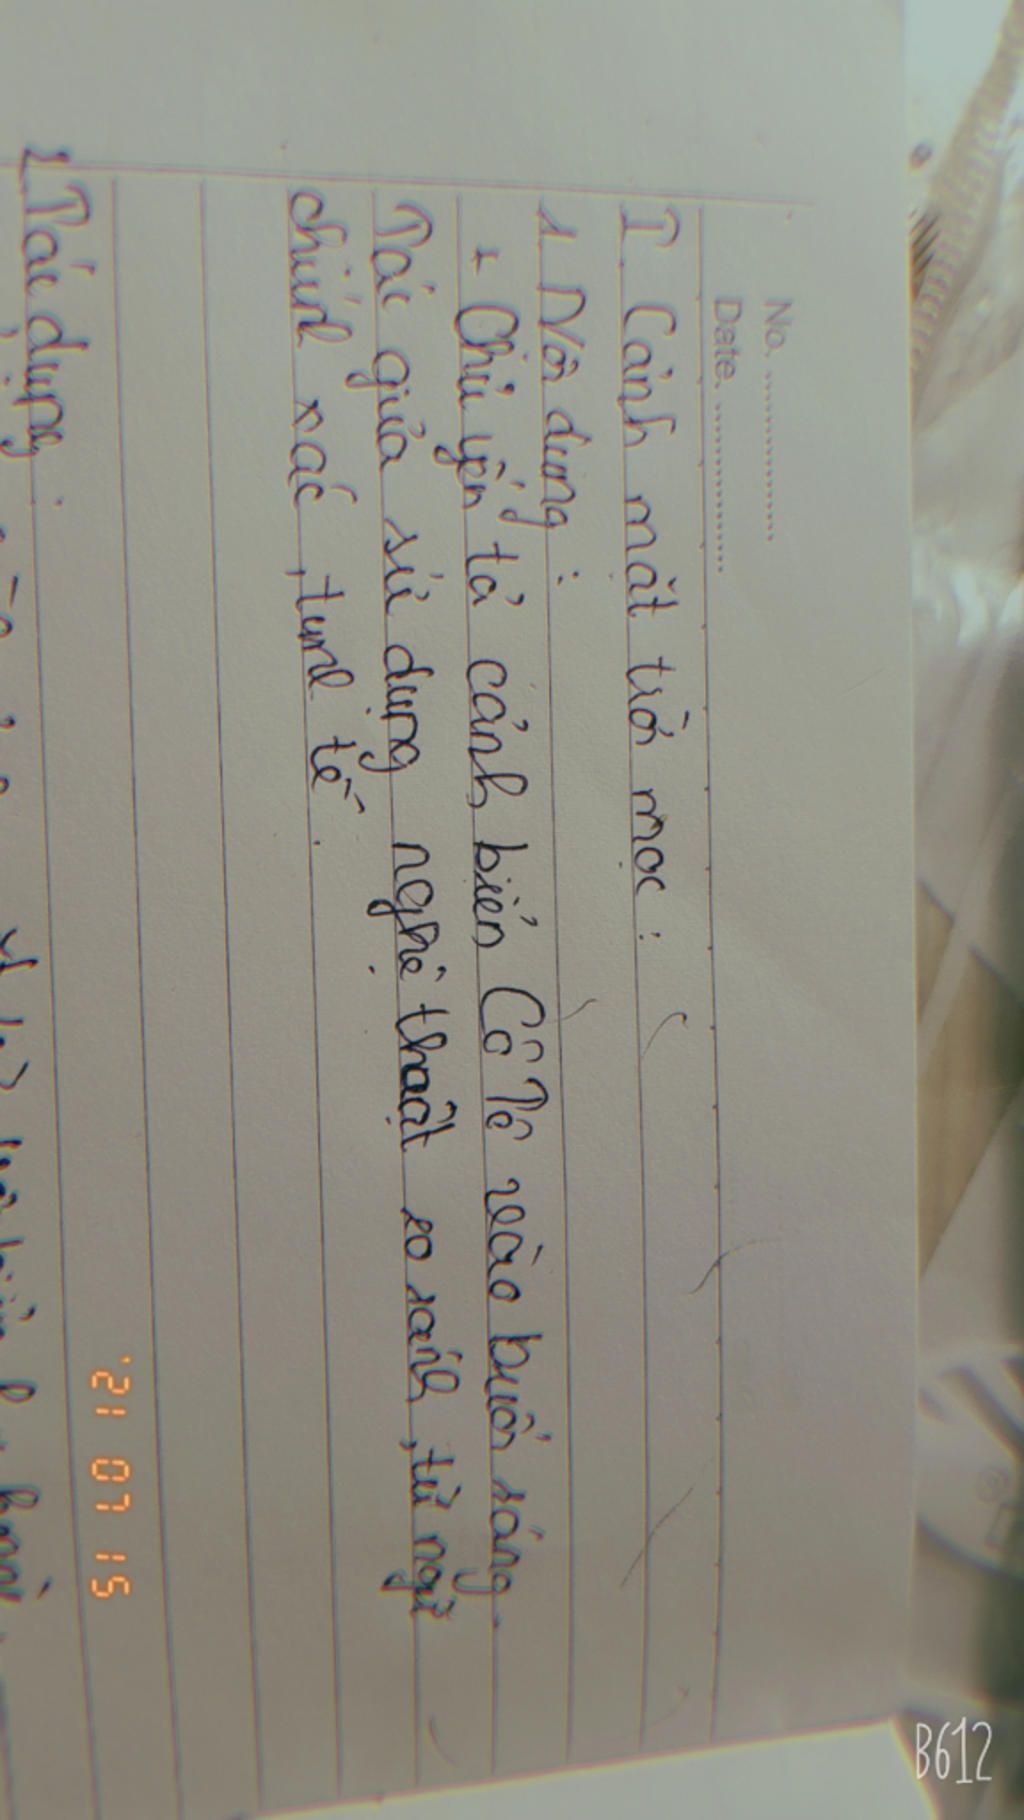 No. ..................
Date. ..................
I. Cảnh mặt trời mọc :
1. Nội dung :
+ Chủ yến tả cảnh biển Cô Tô vào buổi sáng.
Tác giủa sử dụng nghệ thuật so sánh, từ ngữ
chính xác, tinh tế.
2. Tác dụng :
'21 07 15
B612